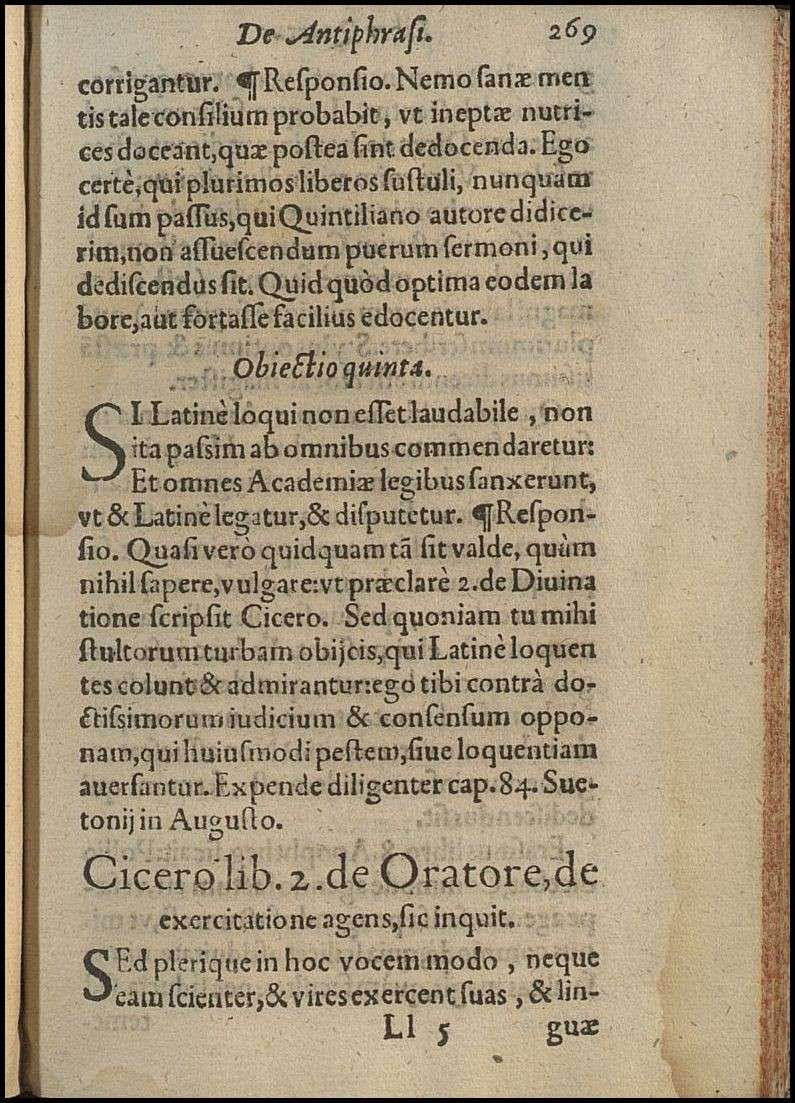 De Antiphraſi. 269
corrigantur. ¶ Reſponſio. Nemo ſanæ men
tis tale conſilium probabit, vt ineptæ nutri-
ces doceant, quæ poſtea ſint dedocenda. Ego
certè, qui plurimos liberos ſuſtuli, nunquam
id ſum paſſus, qui Quintiliano autore didice-
rim, non aſſueſcendum puerum ſermoni, qui
dediſcendus ſit. Quid quòd optima eodem la
bore, aut fortaſſe facilius edocentur.
Obiectio quinta.
SI Latinè loqui non eſſet laudabile, non
ita paſsim ab omnibus commendaretur:
Et omnes Academiæ legibus ſanxerunt,
vt & Latinè legatur, & diſputetur. ¶ Reſpon-
ſio. Quaſi verò quidquam tã ſit valde, quàm
nihil ſapere, vulgare: vt præclarè 2. de Diuina
tione ſcripſit Cicero. Sed quoniam tu mihi
ſtultorum turbam obijcis, qui Latinè loquen
tes colunt & admirantur: ego tibi contrà do-
ctiſsimorum iudicium & conſenſum oppo-
nam, qui huiuſmodi peſtem, ſiue loquentiam
auerſantur. Expende diligenter cap. 84. Sue-
tonij in Auguſto.
Cicero lib. 2. de Oratore, de
exercitatione agens, ſic inquit.
SEd plerique in hoc vocem modo, neque
eam ſcienter, & vires exercent ſuas, & lin-
Ll 5 guæ